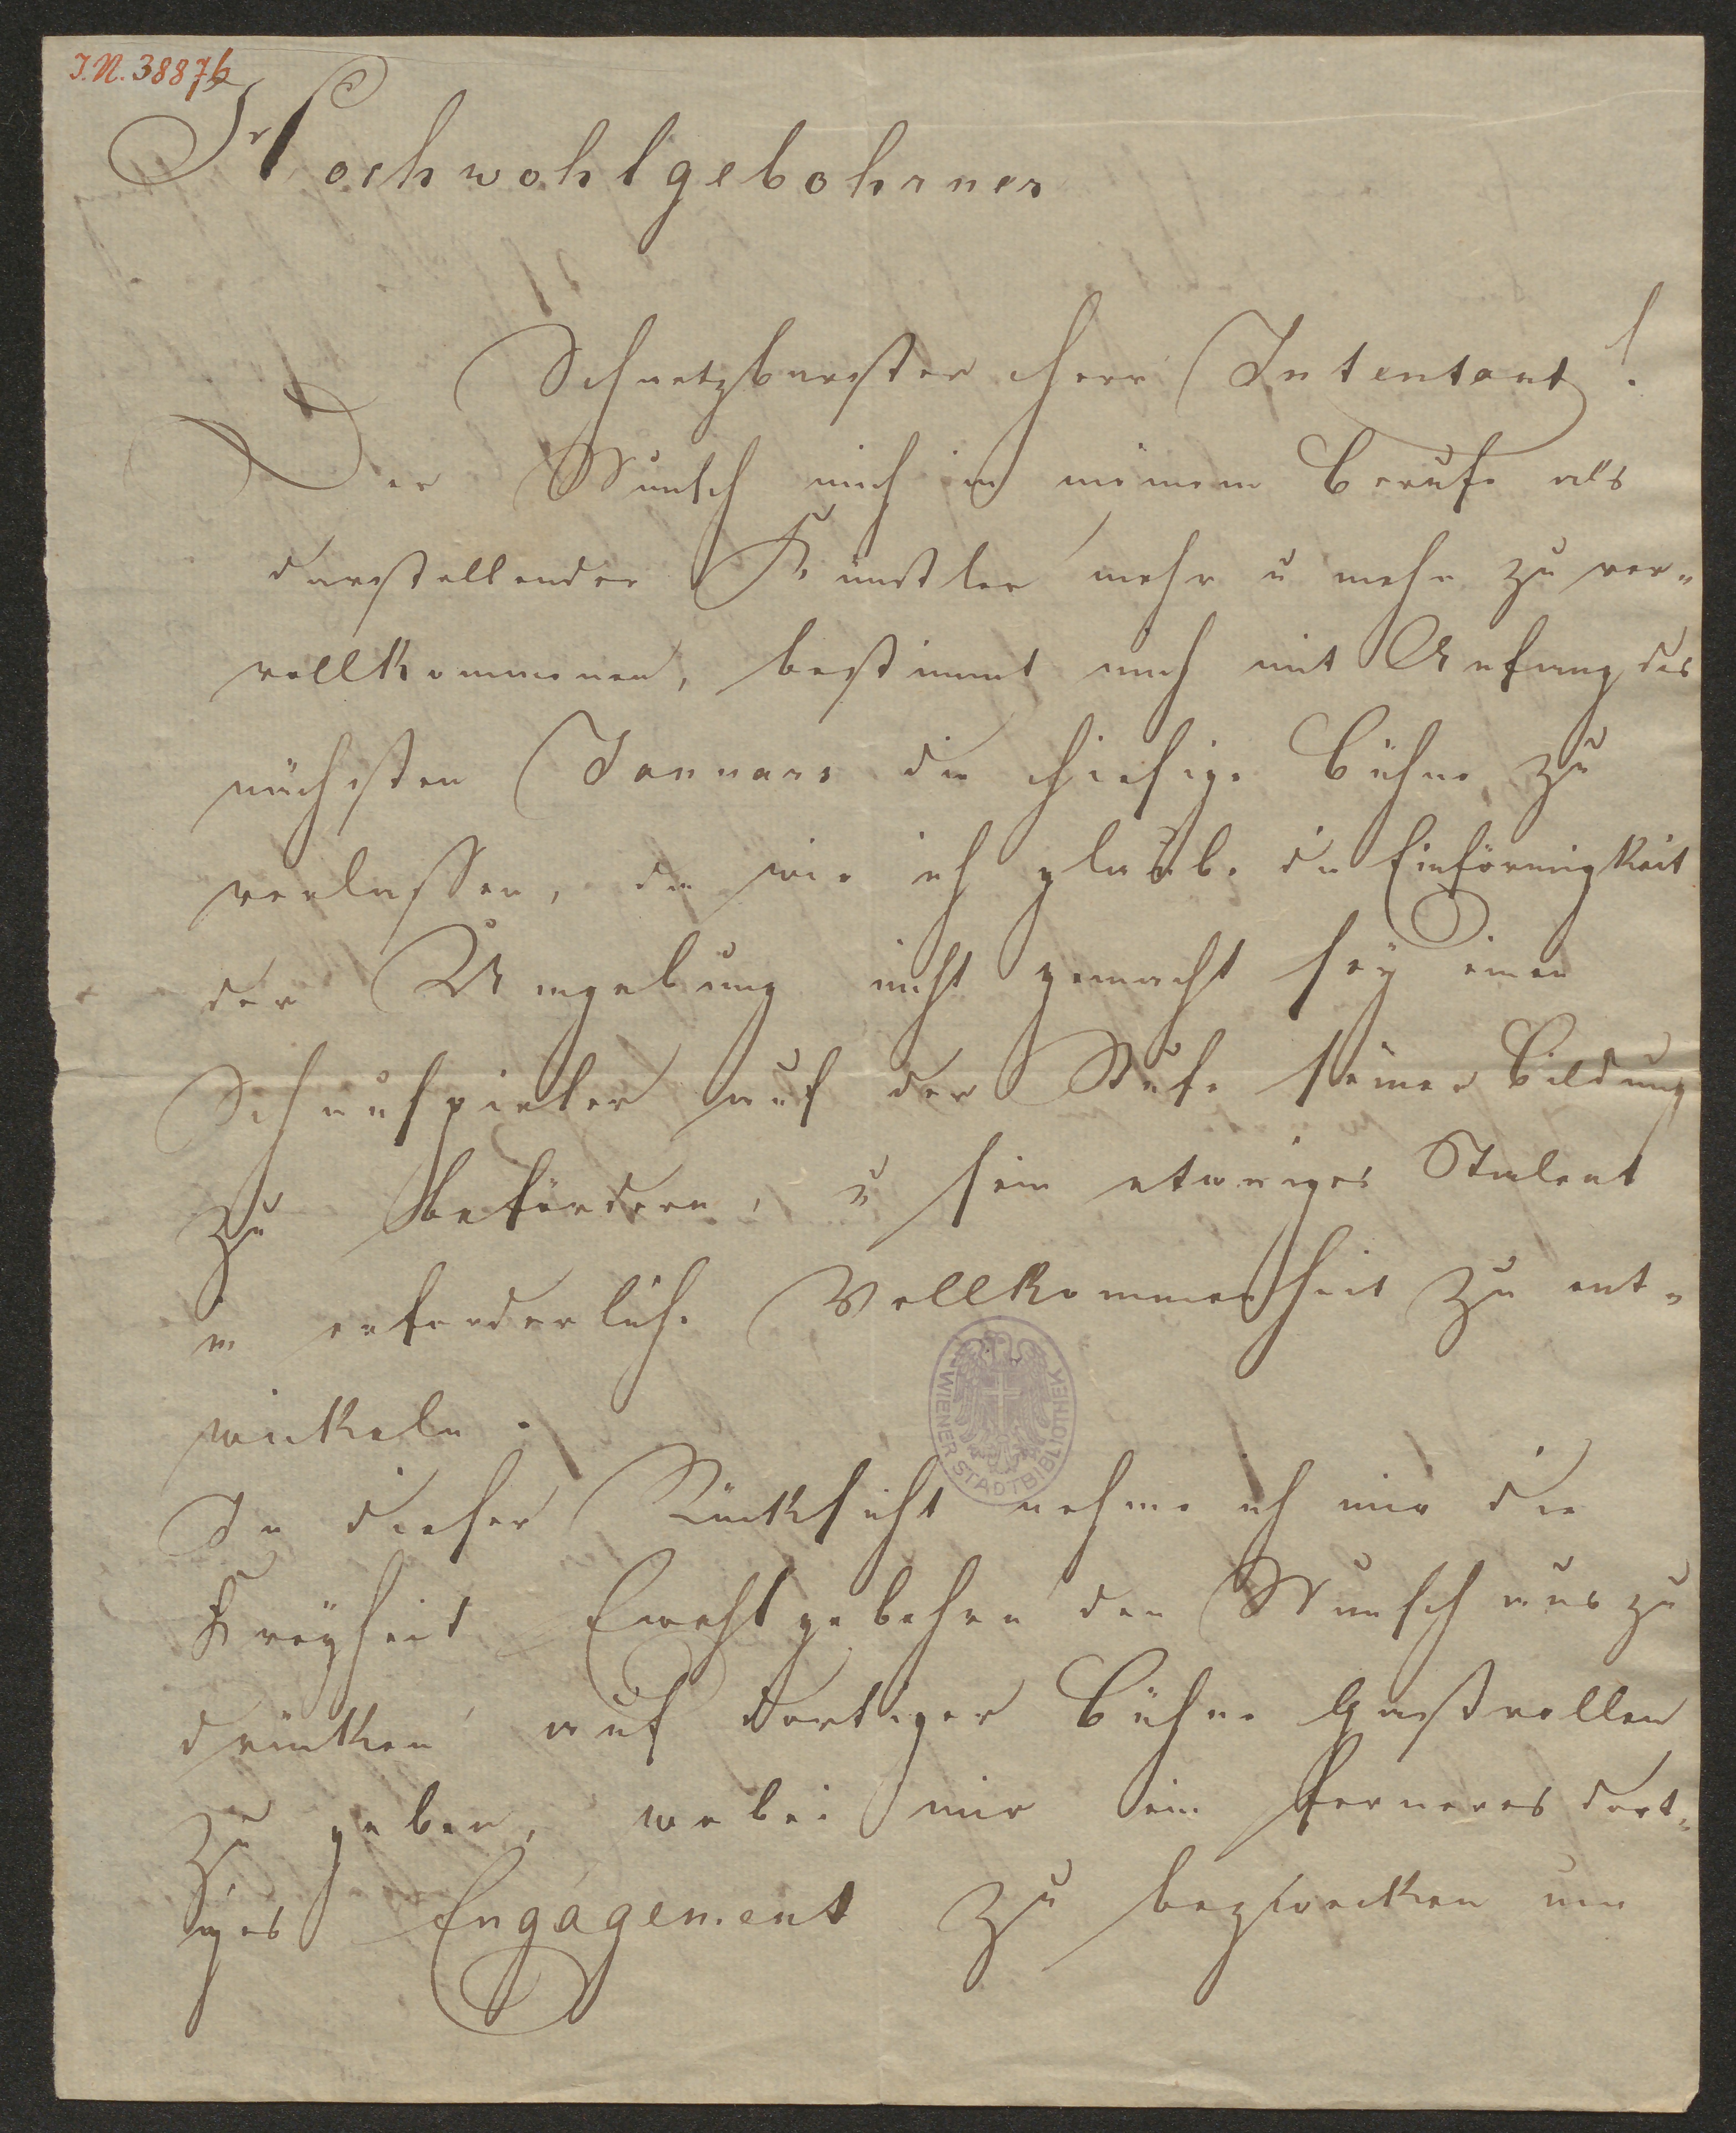 I.N. 38876
Hochwohlgebohrner
Schaetzbarster Herr Intentant!
Der Wunsch mich in meinem Berufe als
darstellender Künstler mehr u mehr zu ver-
vollkommnen, bestimmt mich mit Anfang des
nächsten Januars die hiesige Bühne zu
verlassen, da wie ich glaube die Einförmigkeit
der Umgebung nicht gemacht sey einen
Schauspieler auf der Stufe seiner Bildung
zu befördern, u sein etwaiges Talent
in erforderliche Vollkommenheit zu ent-
wickeln.
In dieser Rücksicht nehme ich mir die
Freyheit Ewohlgebohrn den Wunsch aus zu
drücken auf dortiger Bühne Gastrollen
zu geben, wobei mir ein ferneres dort-
iges Engagement zu bezwecken um
WIENER STADTBIBLIOTHEK